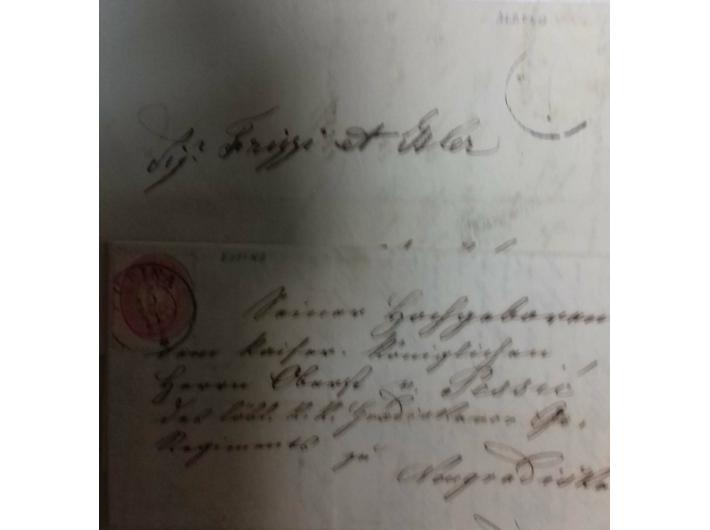 Sig.r Frizzi et Esler
Seiner Hochgeboren
dem kaiser. königlichen
Herrn Oberst v. Pessić
des löbl. k. k. Gradiskaner Gr.
Regiments zu Neugradiska